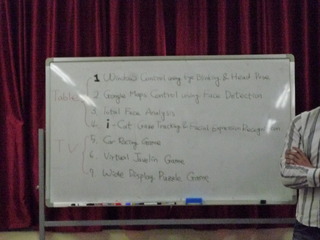 Table
1 Windows Control using Eye Blinking & Head Pose
2. Google Maps Control using Face Detection
3. Intel Face Analysis
4. i-Cat Gaze Tracking & Facial Expression Recognition
TV
5. Car Racing Game
6. Virtual Javelin Game
7. Wide Display Puzzle Game